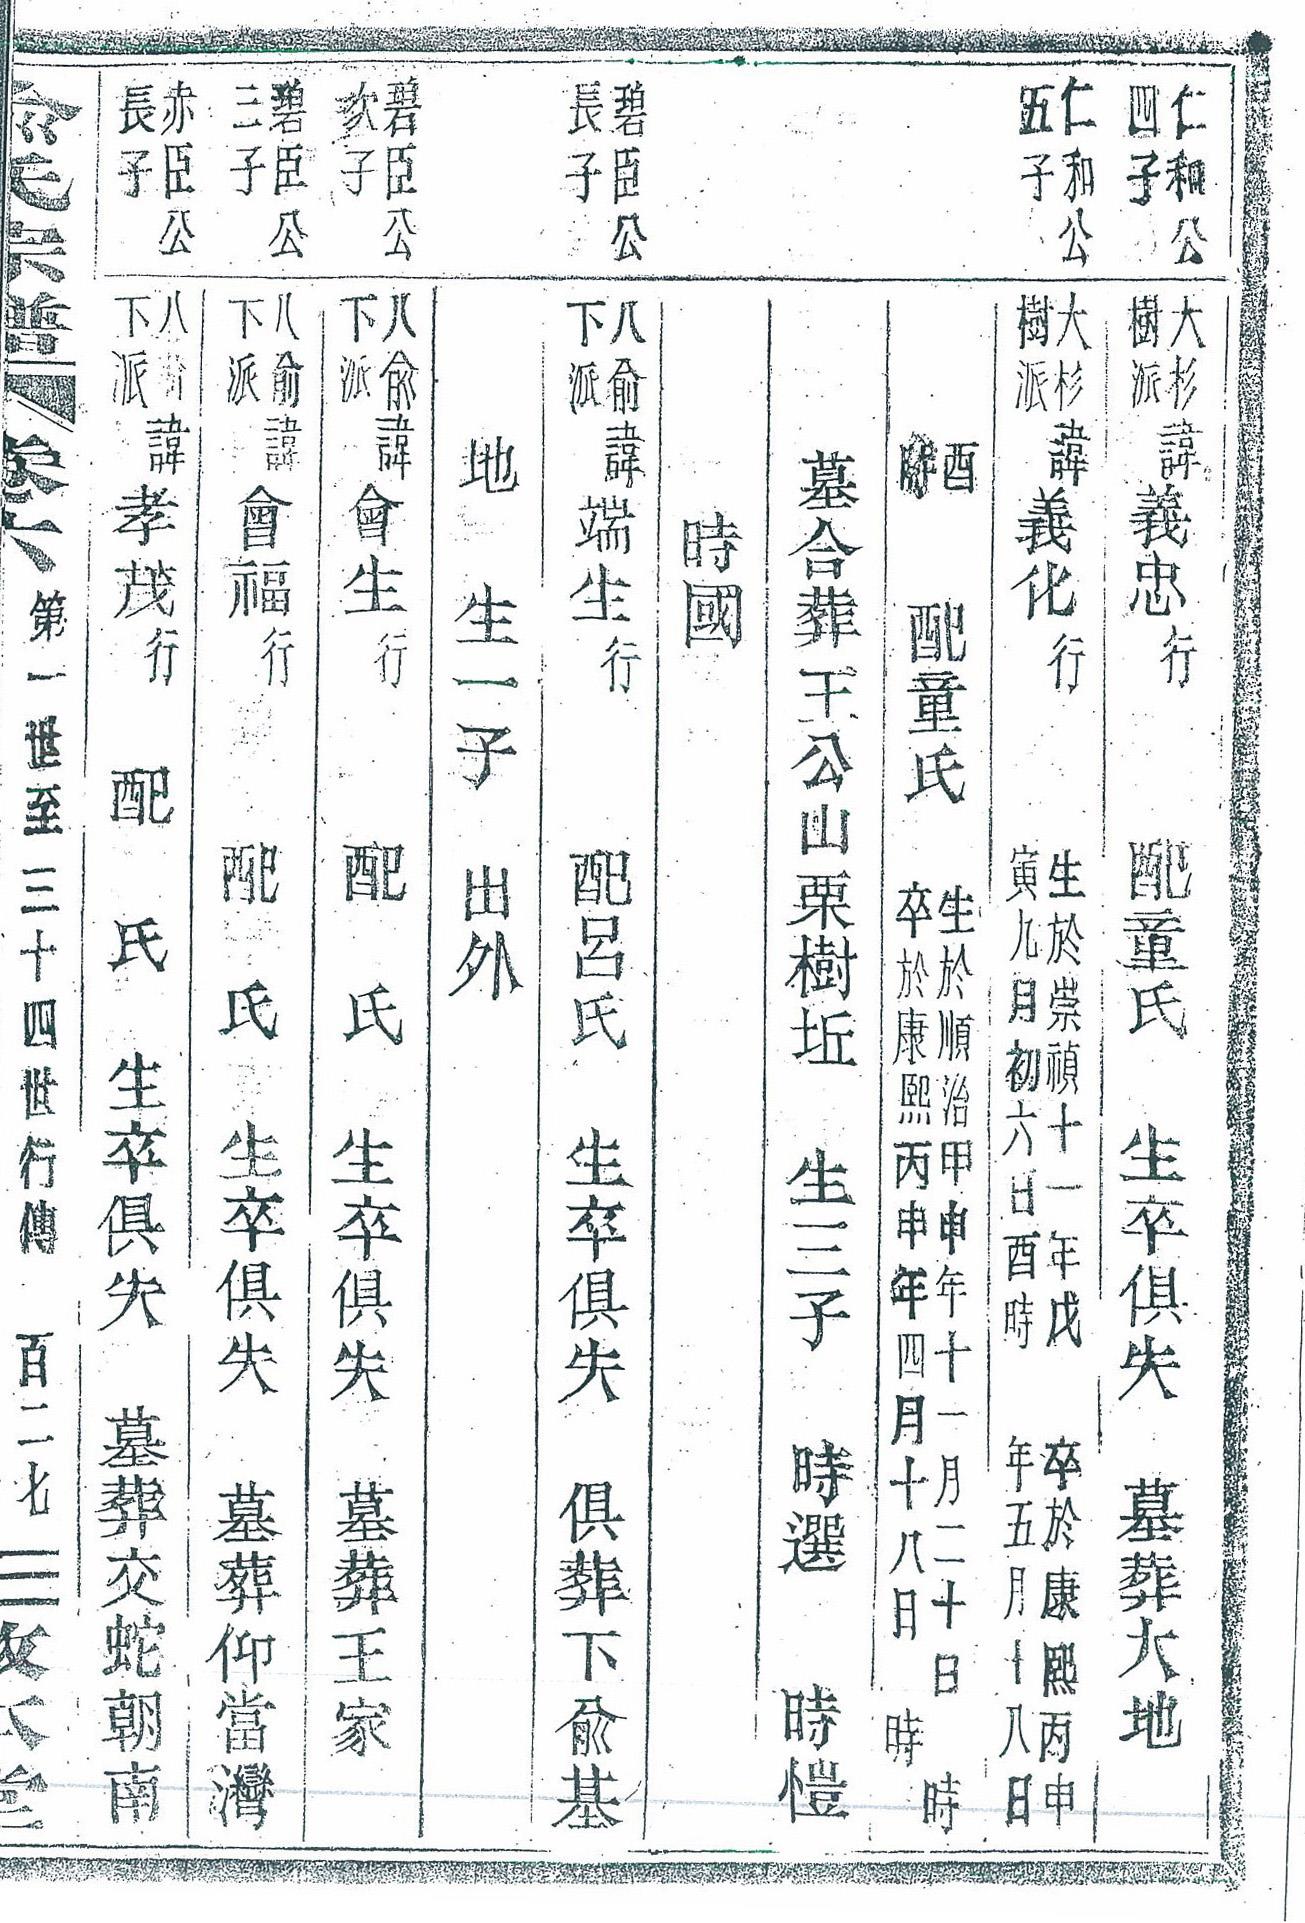 仁和公
四子
大杉
樹派
諱義忠行 配童氏 生卒俱失 墓葬大地
仁和公
五子
大杉
樹派
諱義化行
生於崇禎十一年戊
寅九月初六日酉時
卒於康熙丙申
年五月十八日
酉
時
配童氏
生於順治甲申年十一月二十日 時
卒於康熙丙申年四月十八日 時
墓合葬王公山栗樹坵 生三子 時選 時愷
時國
碧臣公
長子
八俞
下派
諱端生行 配呂氏 生卒俱失 俱葬下俞基
地 生一子 出外
碧臣公
次子
八俞
下派
諱會生行 配 氏 生卒俱失 墓葬王家
碧臣公
三子
八俞
下派
諱會福行 配 氏 生卒俱失 墓葬仰當灣
赤臣公
長子
八俞
下派
諱孝茂行 配 氏 生卒俱失 墓葬交蛇朝南
俞氏宗譜 卷六 第一世至三十四世行傳 百二七